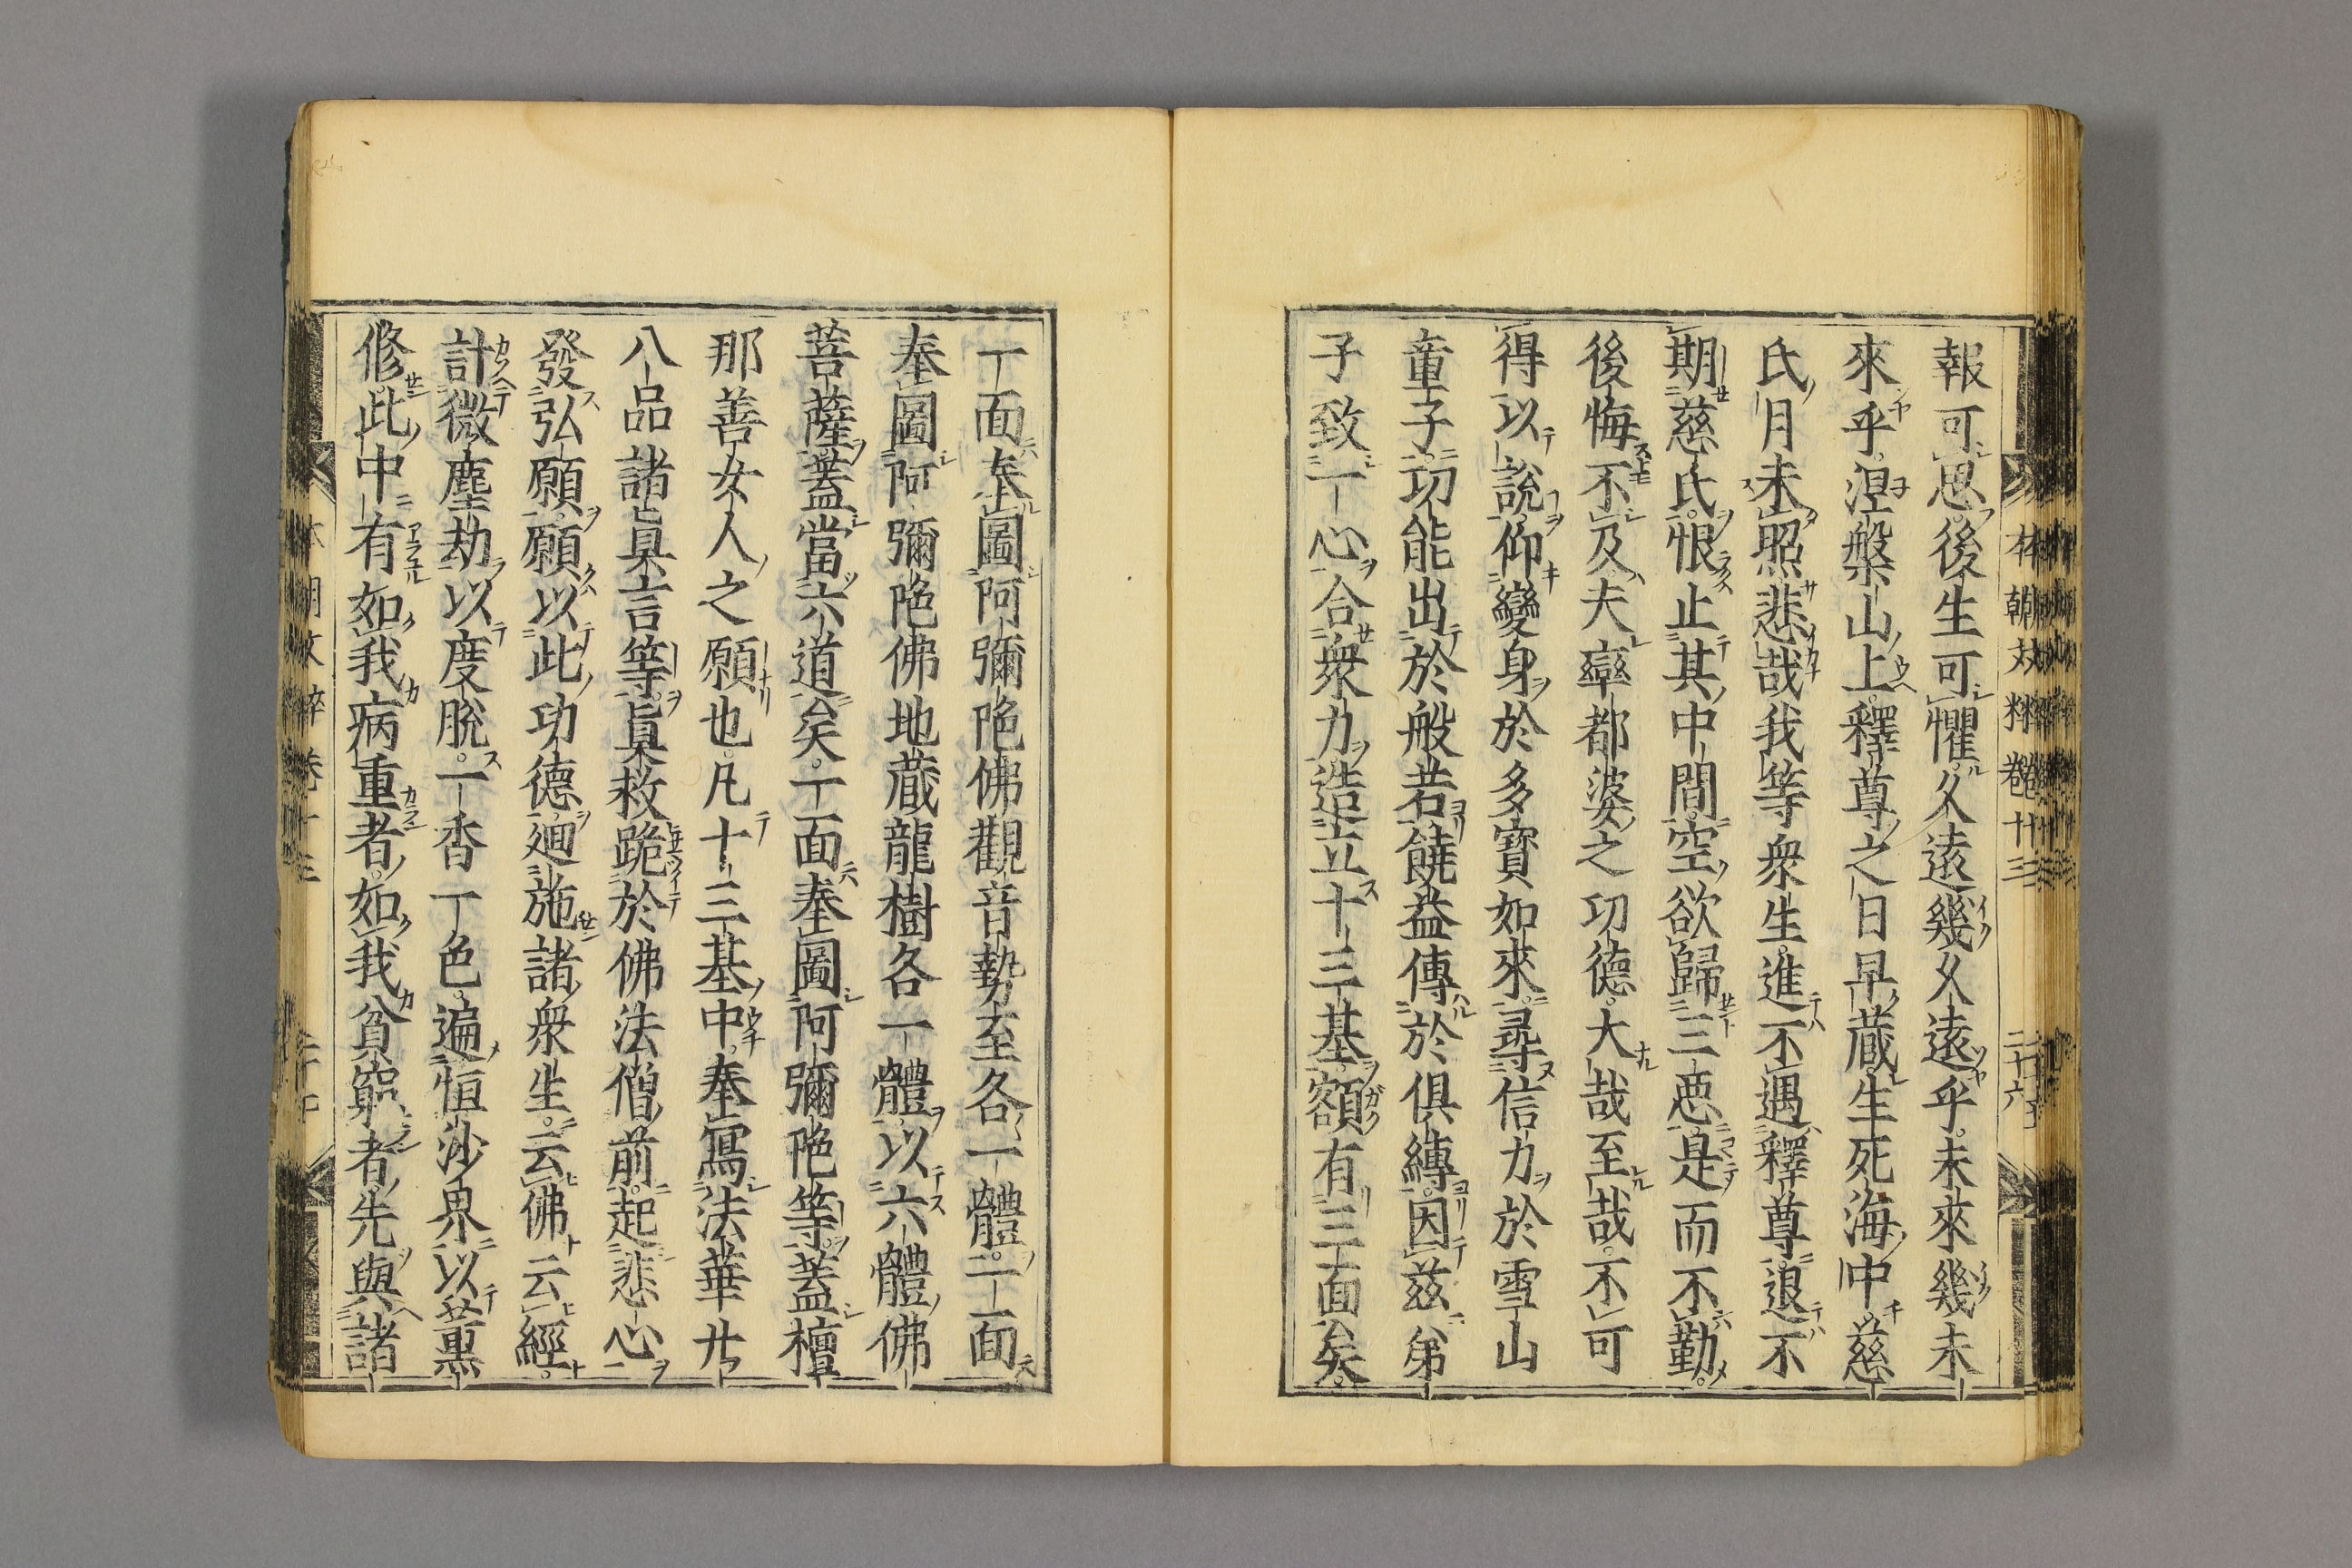 本朝文粹卷十三
二十六
報可思後生可懼久遠幾久遠乎未來幾未
來乎涅槃山上釋尊之日早蔵生死海中慈
氏月未照悲哉我等衆生進不遇釋尊退不
期慈氏恨止其中間空欲歸三悪是而不勤
後悔不及夫窣都婆之功德大哉至哉不可
得以說仰變身於多寶如來尋信力於雪山
童子功能出於般若饒益傳於俱縛因茲弟
子致一心合衆力造立十三基額有三面矣
一面奉圖阿彌陁佛觀音勢至各一體二面
奉圖阿彌陁佛地蔵龍樹各一體以六體佛
菩薩蓋當六道矣一面奉圖阿彌陁等蓋檀
那善女人之願也凡十三基中奉寫法華廿
八品諸眞言等眞救跪於佛法僧前起悲心
發弘願願以此功德廻施諸衆生云佛云經
計微塵劫以度脫一香一色遍恒沙界以薰
修此中有如我病重者如我貧窮者先與諸